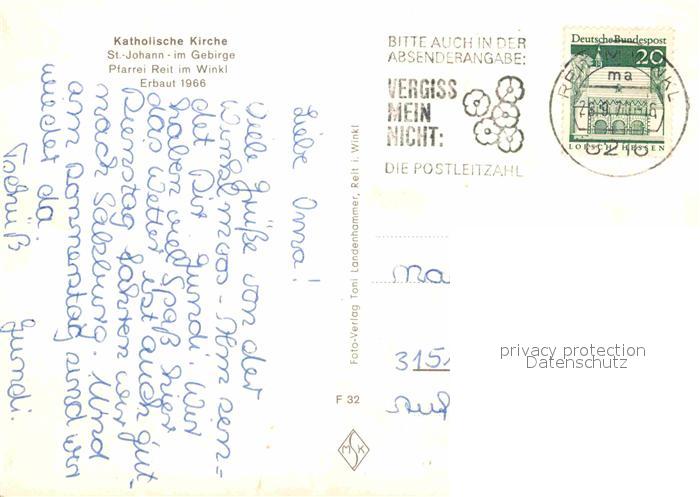 Katholische Kirche
St.-Johann - im Gebirge
Pfarrei Reit im Winkl
Erbaut 1966
Liebe Oma!
Viele Grüße von der
Winkelmoos-Alm sen=
det Dir Gundi. Wir
haben viel Spaß hier
das Wetter ist auch gut.
Dienstag fahren wir
nach Salzburg. Und
am Donnerstag sind wir
wieder da.
Tschüß
Gundi.
Foto-Verlag Toni Landenhammer, Reit i. Winkl
F 32
MSK
BITTE AUCH IN DER
ABSENDERANGABE:
VERGISS
MEIN
NICHT:
DIE POSTLEITZAHL
Deutsche Bundespost
20
LORSCH/HESSEN
REIT IM WINKL
ma
8216
Ma
315
privacy protection
Datenschutz